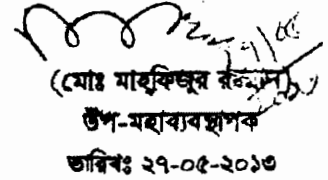 (মোঃ মাহফিজুর রহমান)
উপ-মহাব্যবস্থাপক
তারিখঃ ২৭-০৫-২০১৩